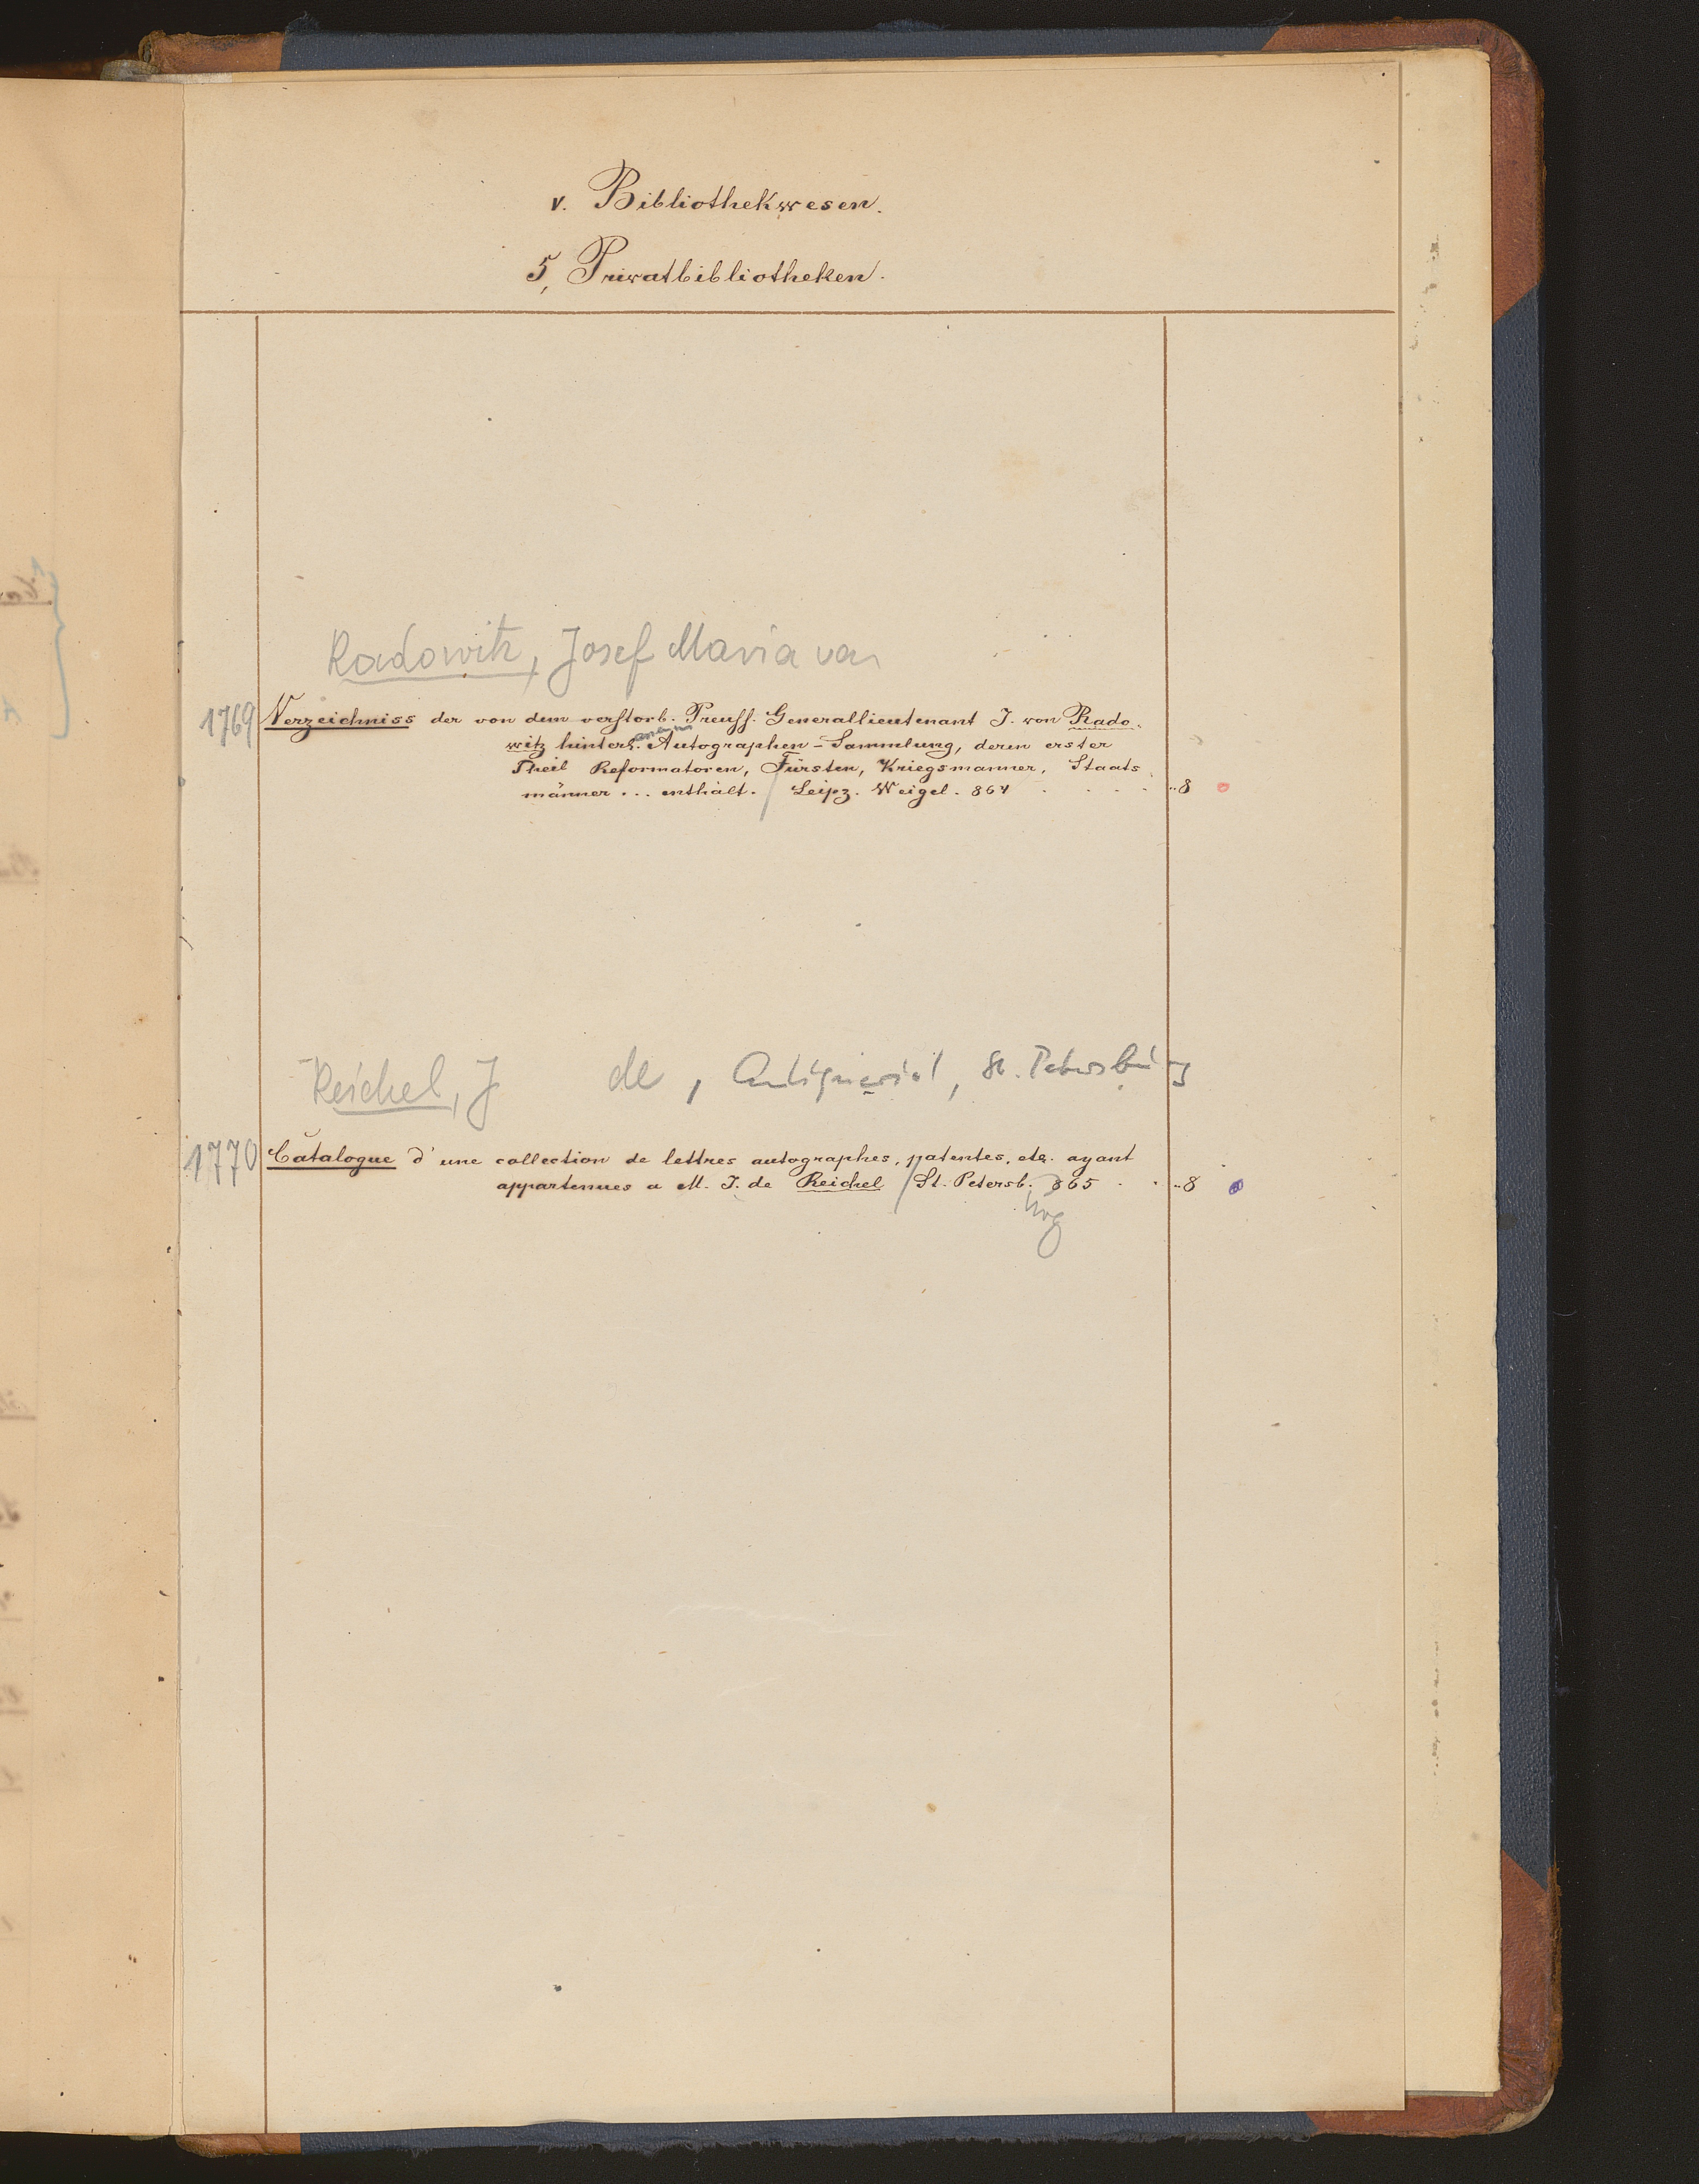 v. Bibliothekwesen.
5, Privatbibliotheken.
Radowitz, Josef Maria von
1769 Verzeichniss der von dem verstorb. Preuss. Generallieutenant J. von Rado-
witz hinterl. Autographen-Sammlung, deren erster
Theil Reformatoren, Fürsten, Kriegsmanner, Staats
männer... enthält. / Leipz. Weigel. 864 . . . . ..8
Reichel, J de, Antiquariat, St. Petersburg
1770 Catalogue d'une collection de lettres autographes, patentes, etc. ayant
appartenues a M. J. de Reichel / St. Petersb. 865 . . ..8